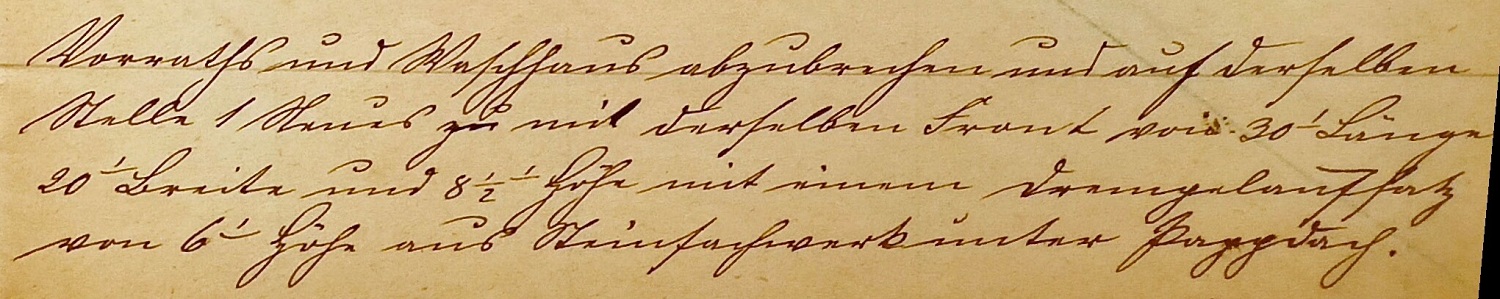 Vorraths und Waschhaus abzubrechen und auf derselben
Stelle 1 Neues zu mit derselben Front von 30' Länge
20' Breite und 8½' Höhe mit einem Drempelaufsatz
von 6' Höhe aus Steinfachwerk unter Pappdach.